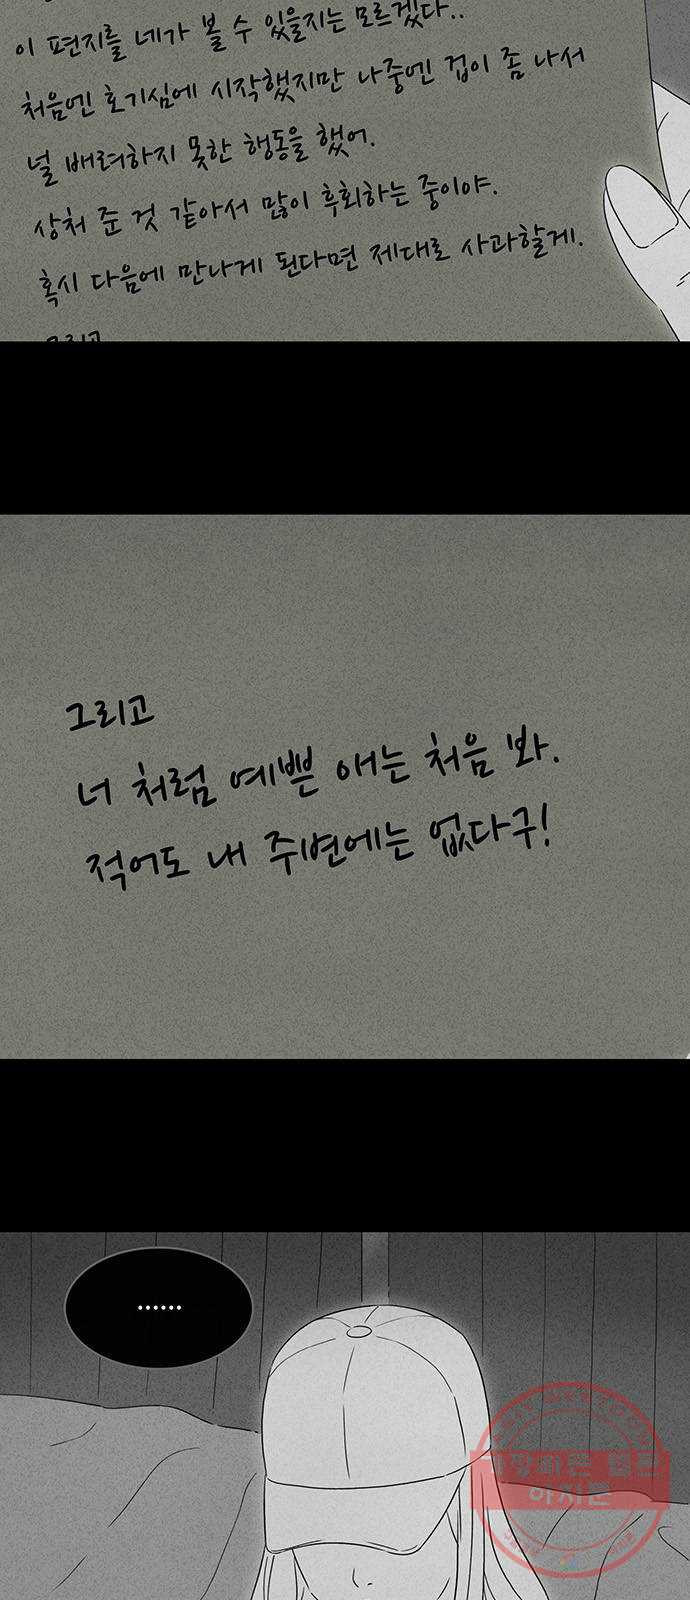 이 편지를 네가 볼 수 있을지는 모르겠다..
처음엔 호기심에 시작했지만 나중엔 겁이 좀 나서
널 배려하지 못한 행동을 했어.
상처 준 것 같아서 많이 후회하는 중이야.
혹시 다음에 만나게 된다면 제대로 사과할게.
그리고
그리고
너 처럼 예쁜 애는 처음 봐.
적어도 내 주변에는 없다구!
……